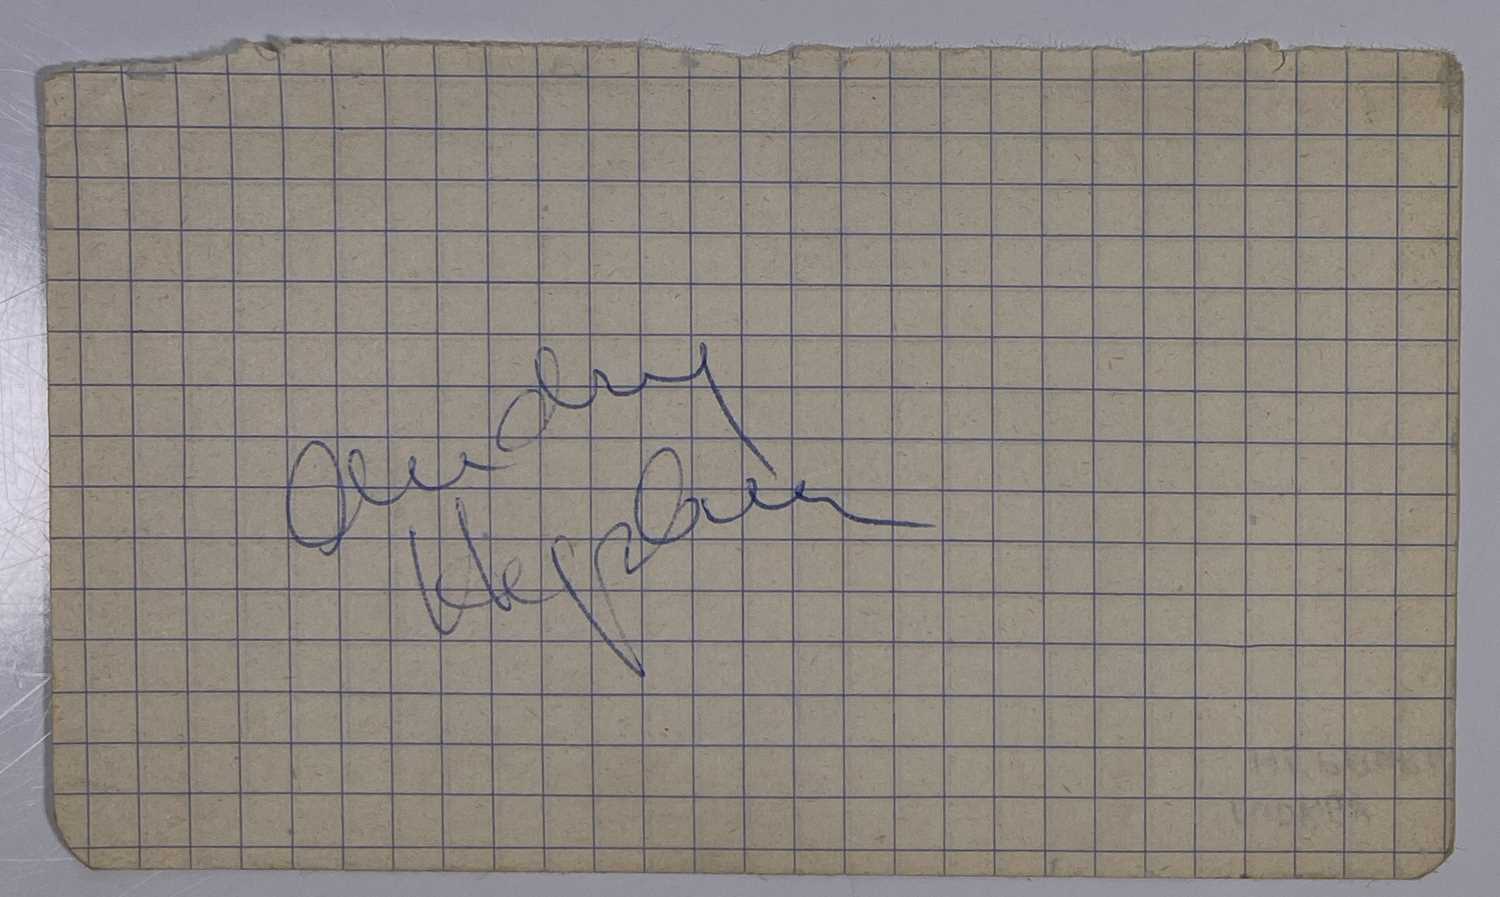 Audrey
Hepburn